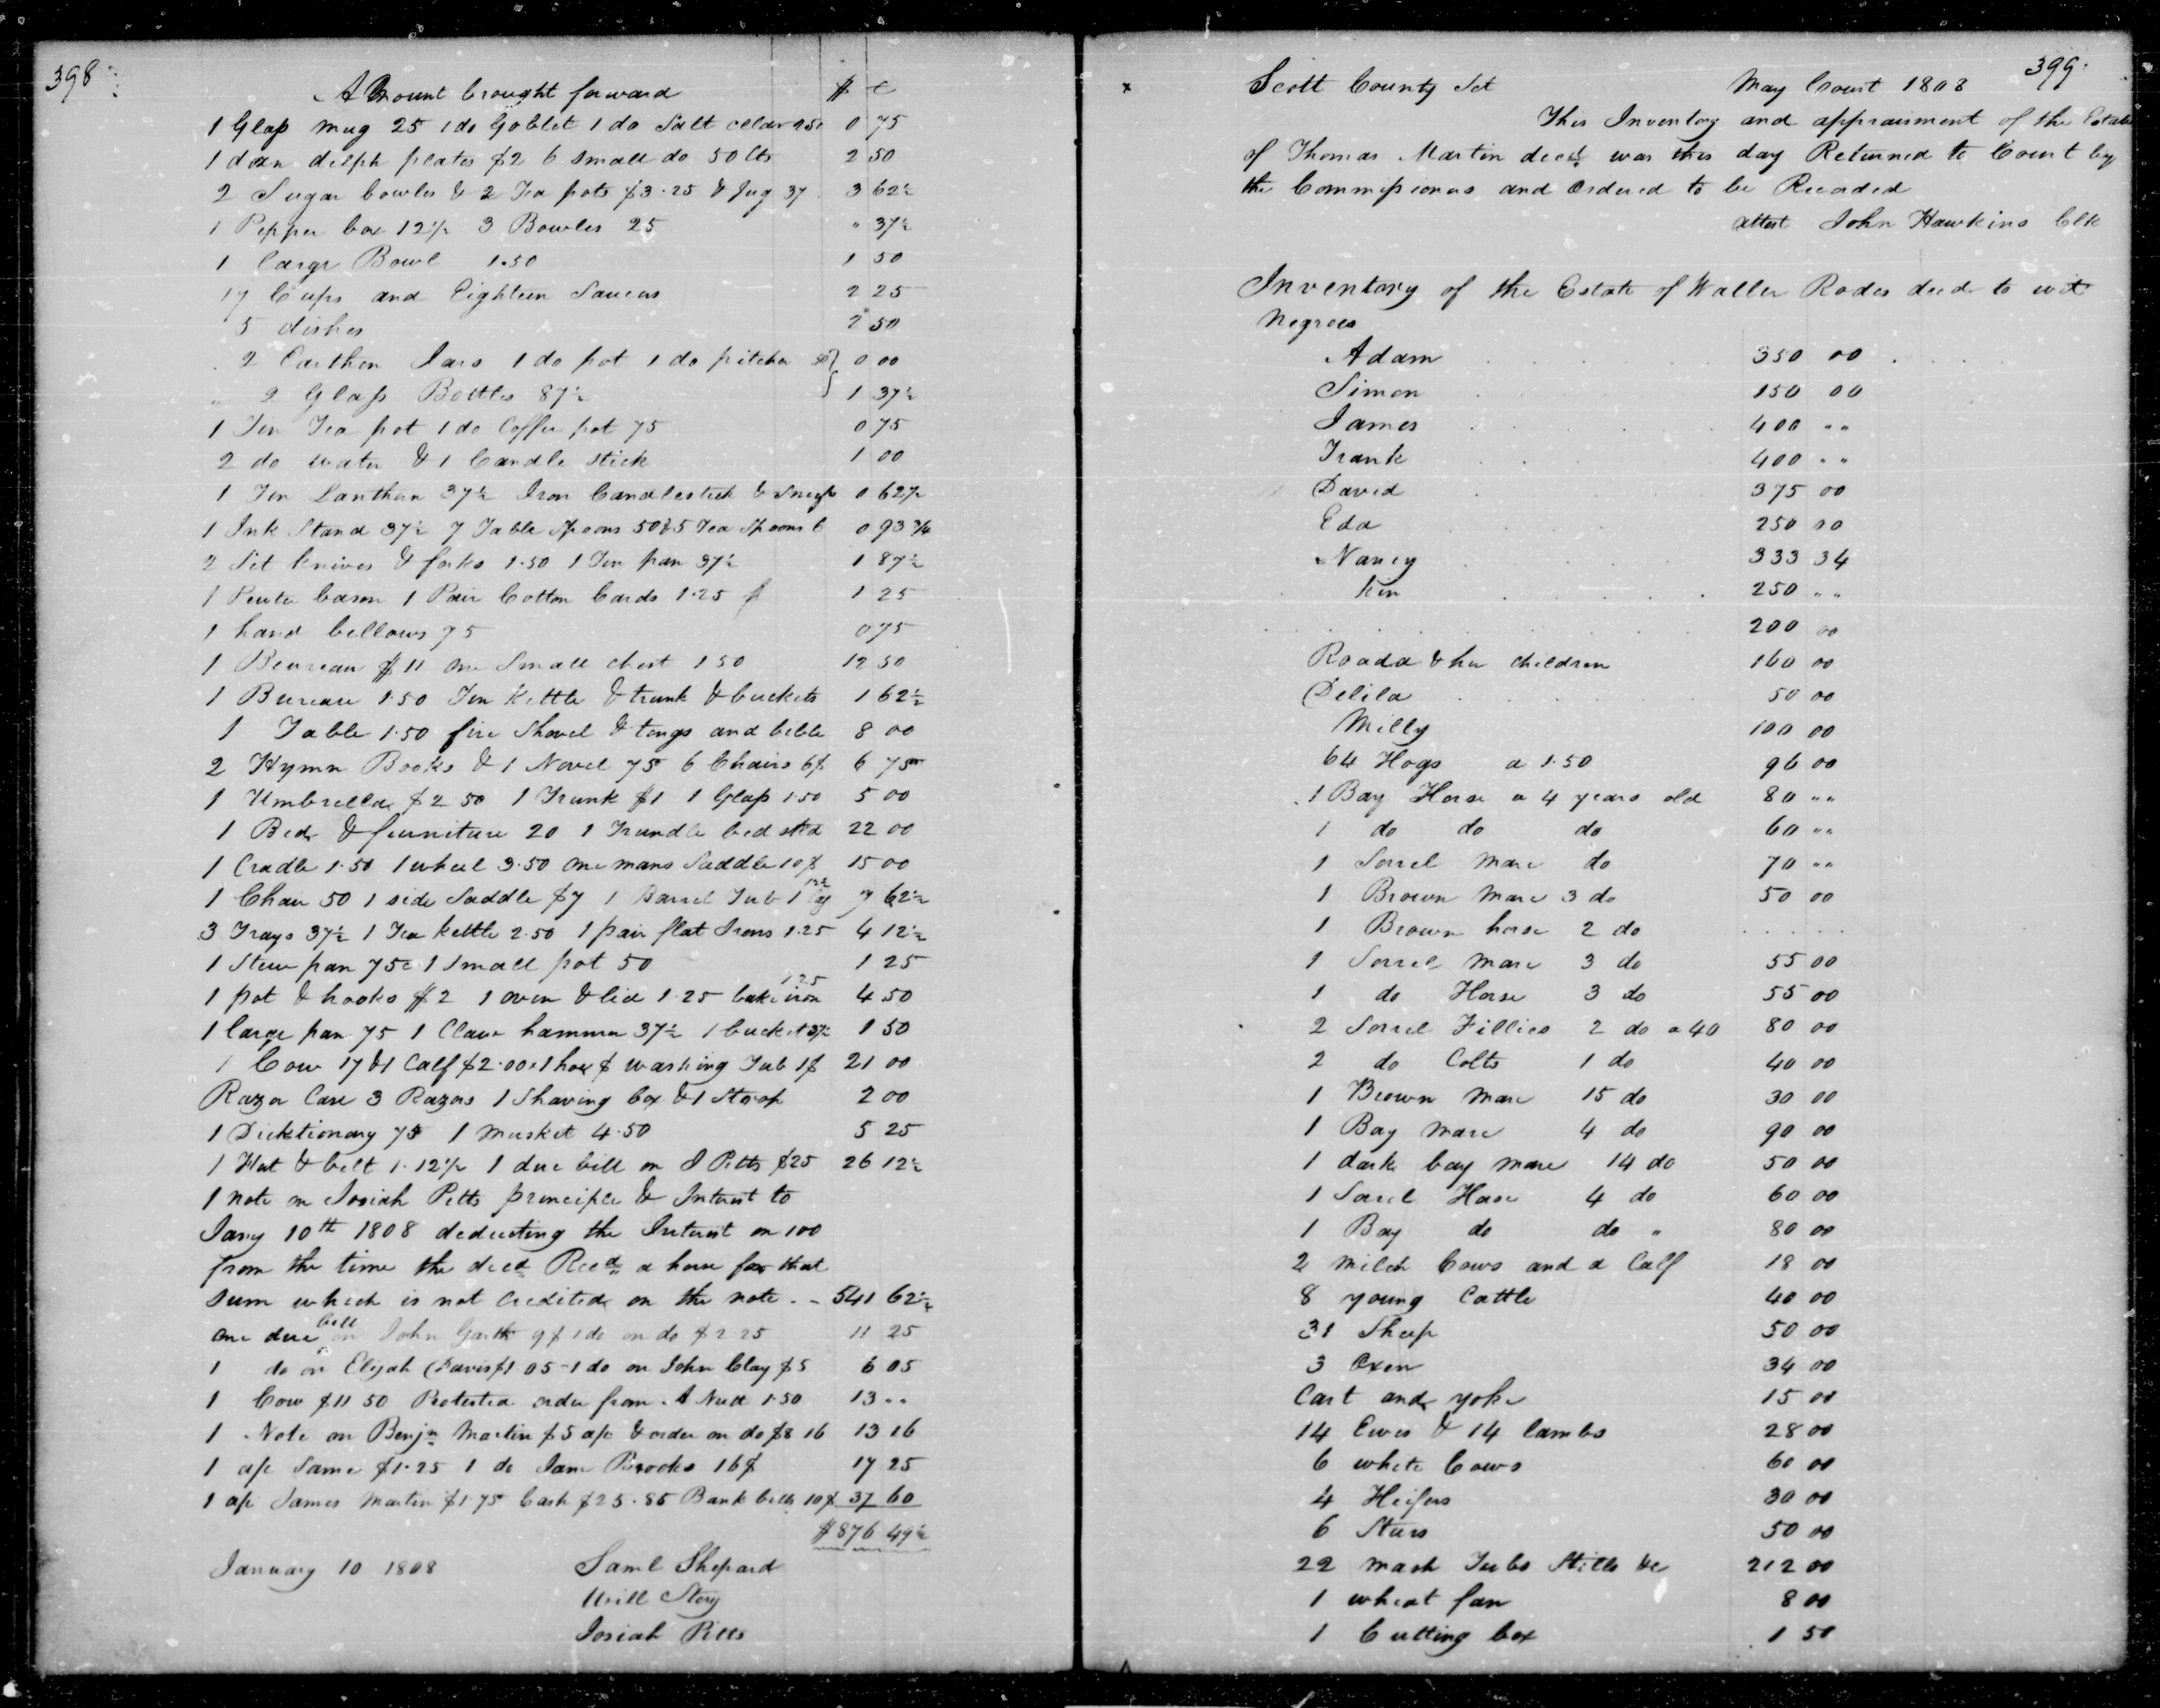 398
Amount brought forward $ c
1 Glass mug 25 1 do Goblet 1 do Salt cellar 25c 0 75
1 dozn delph plates $2 6 small do 50 Cts 2 50
2 Sugar bowles & 2 Tea pots $3.25 & Jug 37 3 62½
1 Pepper box 12½ 3 Bowles 25 " 37½
1 large Bowl 1.50 1 50
17 Cups and Eighteen Saucers 2 25
5 dishes 2 50
2 Earthen Jars 1 do pot 1 do pitcher 50 0 00
2 Glass Bottles 87½ 1 37½
1 Tin Tea pot 1 do Coffee pot 75 0 75
2 do water & 1 Candle stick 1 00
1 Tin Lanthern 37½ Iron Candlestick & 0 62½
1 Ink Stand 37½ 7 Table Spoons 50 & 5 Tea Spoons 6 0 93¾
2 Set knives & forks 1.50 1 Tin pan 37½ 1 87½
1 Pewter bason 1 Pair Cotton Cards 1.25 1 25
1 hand bellows 75 0 75
1 Beureau $11 one Small chest 150 12 50
1 Bureau 1.50 Tin Kettle & trunk & buckets 1 62½
1 Table 1.50 fire Shovel & tongs and bible 8 00
2 Hymn Books & 1 Novel 75 6 Chairs 6$ 6 75
1 Umbrella $2 50 1 Trunk $1 1 Glass 1.50 5 00
1 Bed & furniture 20 1 Trundle bed sted 22 00
1 Cradle 1.50 1 wheel 3.50 one mans Saddle 10$ 15 00
1 Chair 50 1 side Saddle $7 1 Barrel Tub 1 7 62½
3 Trays 37½ 1 Tea kettle 2.50 1 pair flat Irons 1.25 4 12½
1 Stew pan 75c 1 small pot 50 1 25
1 pot & hooks $2 1 oven & lid 1.25 bake iron 1.25 4 50
1 large pan 75 1 Claw hammer 37½ 1 bucket 37½ 1 50
1 Cow 17 & 1 Calf $2.00 1 hoe $ washing Tub 1$ 21 00
Razor Case 3 Razors 1 Shaving box & 1 Strop 2 00
1 Dicktionary 75 1 musket 4.50 5 25
1 Hat & belt 1.12½ 1 due bill on J Pitts $25 26 12½
1 note on Josiah Pitts principle & Interest to
Jany 10th 1808 deducting the Interest on 100
from the time the decd Recd a horse for that
sum which is not credited on the note - - 541 62½
one due bill on John Garth 9$ 1 do on do $2 25 11 25
1 do on Elijah Davis $1.05 - 1 do on John Clay $5 6 05
1 Cow $11 50 Protested order from A Nud 1.50 13 ..
1 Note on Benjn Martin $5 a/c & order on do $8 16 13 16
1 a/c Same $1.25 1 do Sam Brooks 16$ 17 25
1 a/c James Martin $1.75 Cash $25.85 Bank bills 10$ 37 60
$876 49½
January 10 1808 Saml Shepard
Will Story
Josiah Pitts
399
x Scott County Sct May Court 1808
This Inventory and appraisment of the Estate
of Thomas Martin decd was this day Returned to Court by
the Commissioners and Ordered to be Recorded
attest John Hawkins Clk
Inventory of the Estate of Waller Rodes decd to wit
Negroes
Adam 350 00
Simon 150 00
James 400 ""
Frank 400 ""
David 375 00
Eda 250 00
Nancy 333 34
Kin 250 ""
200 00
Roada & her children 160 00
Delila 50 00
Milly 100 00
64 Hogs a 1.50 96 00
1 Bay Horse a 4 years old 80 ""
1 do do do 60 ""
1 Sorrel mare do 70 ""
1 Brown mare 3 do 50 00
1 Brown horse 2 do . . . . .
1 Sorrel mare 3 do 55 00
1 do Horse 3 do 55 00
2 Sorrel Fillies 2 do a 40 80 00
2 do Colts 1 do 40 00
1 Brown mare 15 do 30 00
1 Bay mare 4 do 90 00
1 dark bay mare 14 do 50 00
1 Sorrel Horse 4 do 60 00
1 Bay do do " 80 00
2 milch Cows and a Calf 18 00
8 young Cattle 40 00
31 Sheep 50 00
3 Oxen 34 00
Cart and yoke 15 00
14 Ewes & 14 lambs 28 00
6 white Cows 60 00
4 Heifers 30 00
6 Steers 50 00
22 mash Tubs Stills &c 212 00
1 wheat fan 8 00
1 Cutting box 1 50